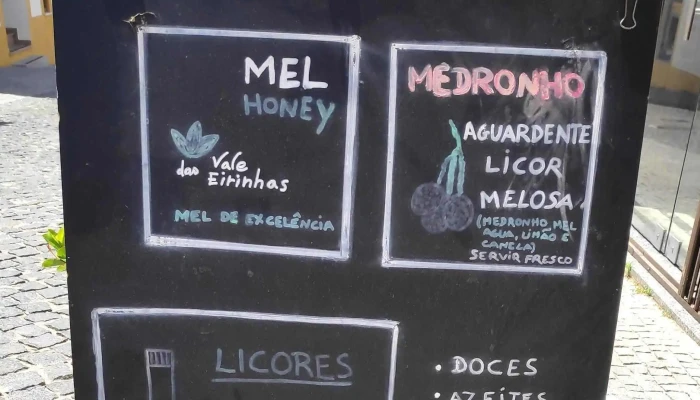 MEL
HONEY
das Vale
Eirinhas
MEL DE EXCELÊNCIA
MEDRONHO
AGUARDENTE
LICOR
MELOSA
(MEDRONHO, MEL
AGUA, LIMÃO E
CANELA)
SERVIR FRESCO
LICORES
• DOCES
• AZEITES